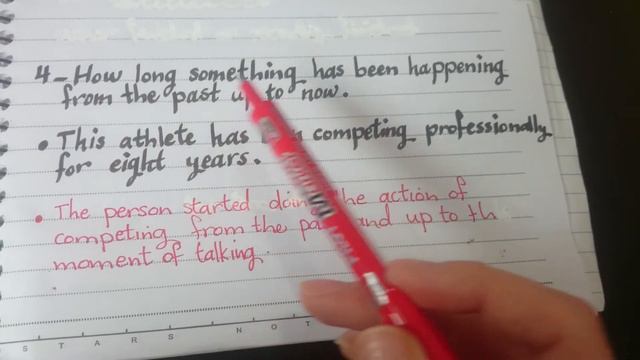 4- How long something has been happening
from the past up to now.
• This athlete has competing professionally
for eight years.
• The person started doing the action of
competing from the pa and up to th
moment of talking.
S T A R S N O T